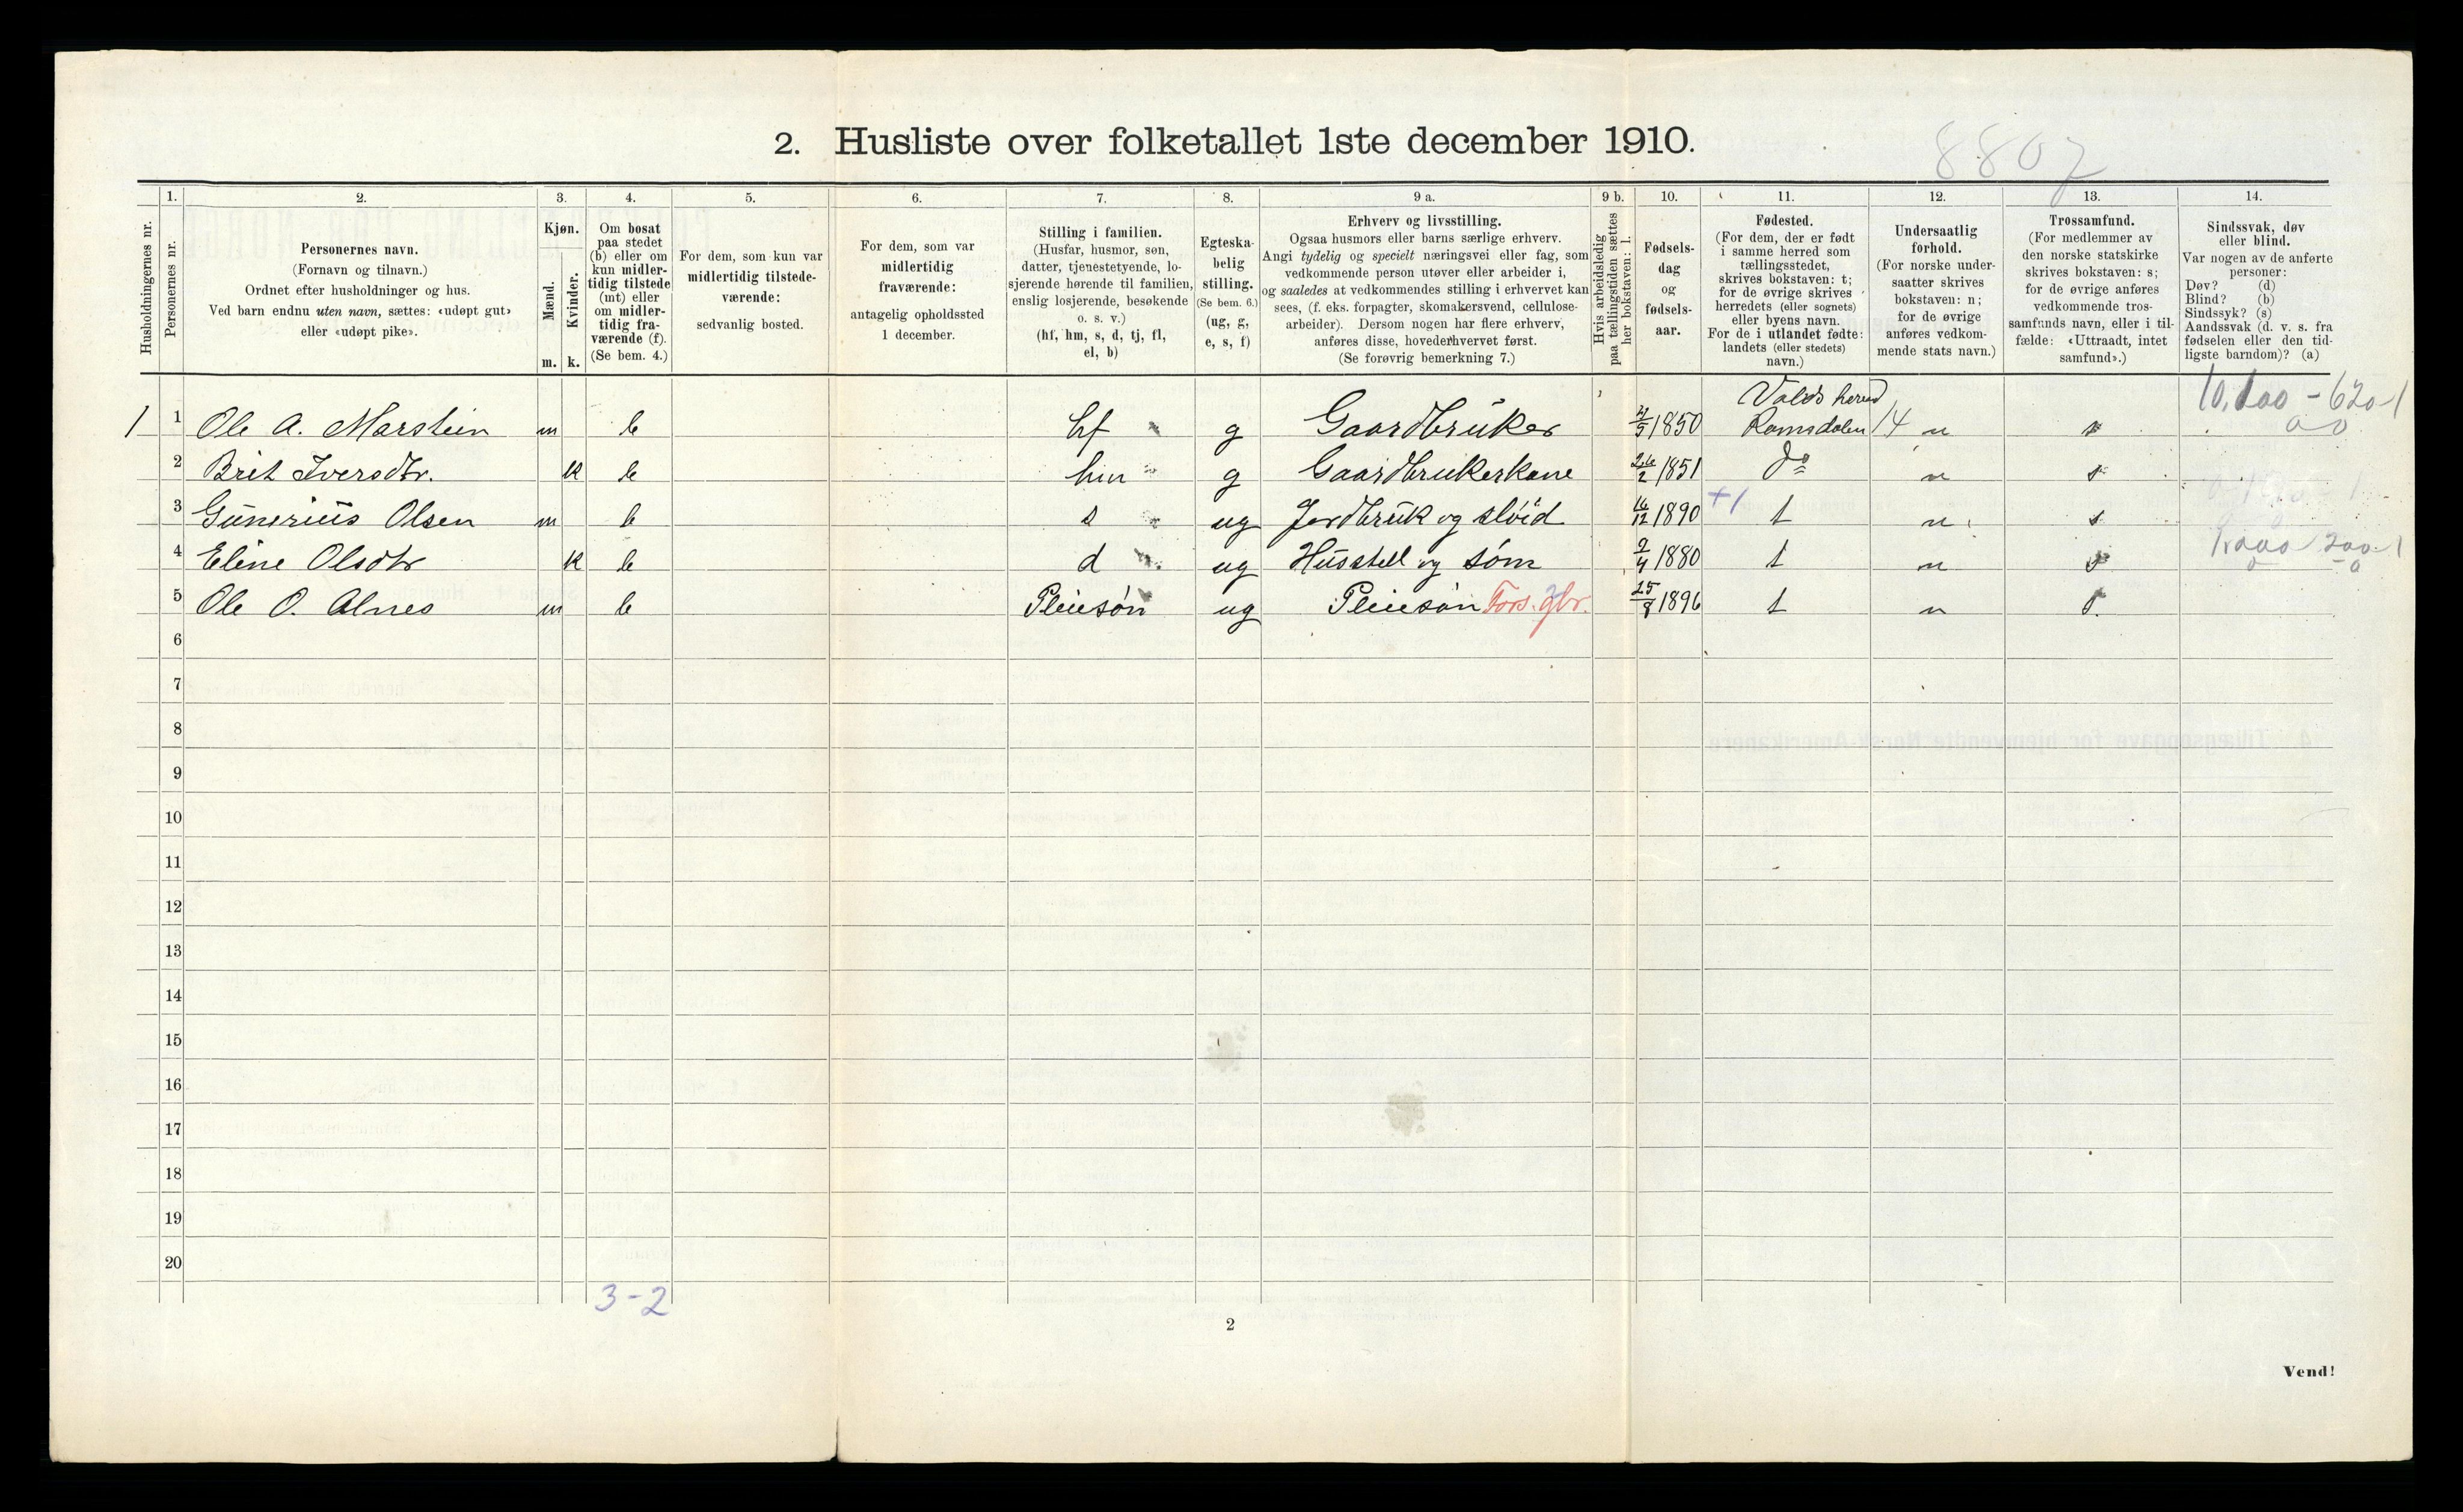 2. Husliste over folketallet 1ste december 1910.
8807
Husholdningernes nr.
1. Personernes nr.
2. Personernes navn.
(Fornavn og tilnavn.)
Ordnet efter husholdninger og hus.
Ved barn endnu uten navn, sættes: «udøpt gut»
eller «udøpt pike».
3. Kjøn.
Mænd. Kvinder.
m. k.
4. Om bosat
paa stedet
(b) eller om
kun midler-
tidig tilstede
(mt) eller
om midler-
tidig fra-
værende (f).
(Se bem. 4.)
5. For dem, som kun var
midlertidig tilstede-
værende:
sedvanlig bosted.
6. For dem, som var
midlertidig
fraværende:
antagelig opholdssted
1 december.
7. Stilling i familien.
(Husfar, husmor, søn,
datter, tjenestetyende, lo-
sjerende hørende til familien,
enslig losjerende, besøkende
o. s. v.)
(hf, hm, s, d, tj, fl,
el, b)
8. Egteska-
belig
stilling.
(Se bem. 6.)
(ug, g,
e, s, f)
9 a. Erhverv og livsstilling.
Ogsaa husmors eller barns særlige erhverv.
Angi tydelig og specielt næringsvei eller fag, som
vedkommende person utøver eller arbeider i,
og saaledes at vedkommendes stilling i erhvervet kan
sees, (f. eks. forpagter, skomakersvend, cellulose-
arbeider). Dersom nogen har flere erhverv,
anføres disse, hovederhvervet først.
(Se forøvrig bemerkning 7.)
9 b. Hvis arbeidsledig
paa tællingstiden sættes
her bokstaven: l.
10. Fødsels-
dag
og
fødsels-
aar.
11. Fødested.
(For dem, der er født
i samme herred som
tællingsstedet,
skrives bokstaven: t;
for de øvrige skrives
herredets (eller sognets)
eller byens navn.
For de i utlandet fødte:
landets (eller stedets)
navn.)
12. Undersaatlig
forhold.
(For norske under-
saatter skrives
bokstaven: n;
for de øvrige
anføres vedkom-
mende stats navn.)
13. Trossamfund.
(For medlemmer av
den norske statskirke
skrives bokstaven: s;
for de øvrige anføres
vedkommende tros-
samfunds navn, eller i til-
fælde: «Uttraadt, intet
samfund».)
14. Sindssvak, døv
eller blind.
Var nogen av de anførte
personer:
Døv? (d)
Blind? (b)
Sindssyk? (s)
Aandssvak (d. v. s. fra
fødselen eller den tid-
ligste barndom)? (a)
Volds herred 10,100 - 620-1
1 1 Ole A. Marstein m b hf g Gaardbruker 1850 Romsdalen 14 n s
2 Brit Iversdtr. k b hm g Gaardbrukerkone 26/2 1851 do n s
3 Gunerius Olsen m b s ug Jordbruk og sløid 16/12 1890 +1 t n s
4 Eline Olsdtr k b d ug Husstell og søm 2/4 1880 t n s 1,000 200-1
5 Ole O. Alnes m b Pleiesøn ug Pleiesøn Fors. gbr. 25/8 1896 t n s.
6
7
8
9
10
11
12
13
14
15
16
17
18
19
20
3-2
2
Vend!